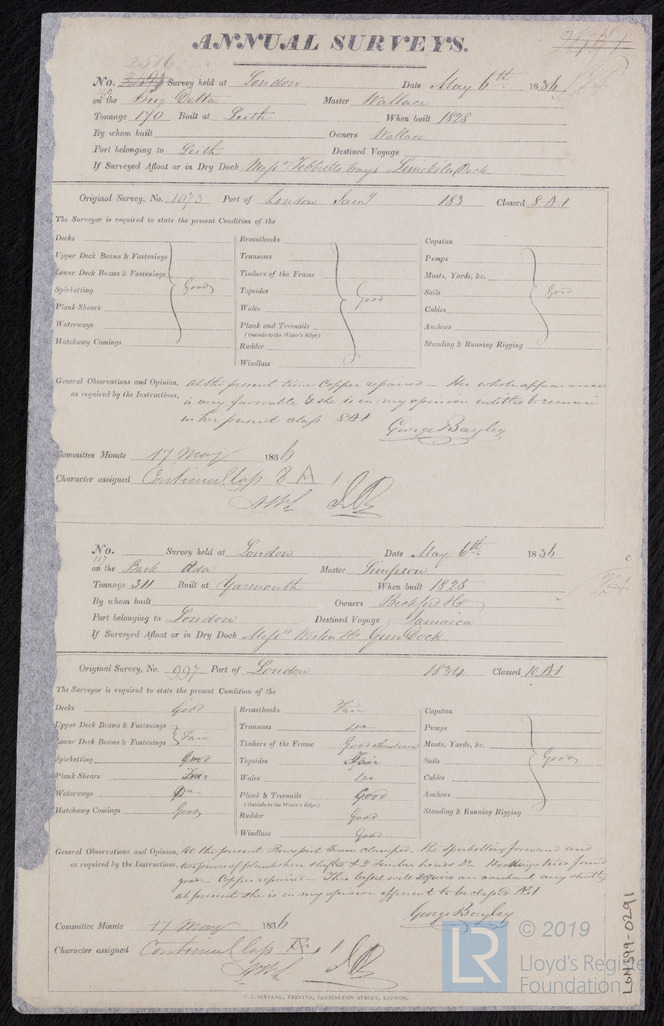 ANNUAL SURVEYS.
No. Survey held at London Date May 6th 1836
on the Brig Delta Master Wallace
Tonnage 170 Built at Perth When built 1828
By whom built Owners Wallace
Port belonging to Perth Destined Voyage
If Surveyed Afloat or in Dry Dock Messrs Limekiln Dock
Original Survey, No. 1073 Port of London Jany 183 Classed 8 A 1
The Surveyor is required to state the present Condition of the
Decks
Upper Deck Beams & Fastenings
Lower Deck Beams & Fastenings
Spirketting Good
Plank Shears
Waterways
Hatchway Comings
Breasthooks
Transoms
Timbers of the Frame
Topsides Good
Wales
Plank and Treenails
(Outside to the Water's Edge)
Rudder
Windlass
Capstan
Pumps
Masts, Yards, &c.
Sails Good
Cables
Anchors
Standing & Running Rigging
General Observations and Opinion, At the present time Copper repaired - Her whole appearance
as required by the Instructions, is very favorable & she is in my opinion entitled to remain
in her present class 8 A 1
George Bayley
Committee Minute 17 May 1836
Character assigned Continued Class 8 A 1
No. Survey held at London Date May 6th 1836
on the Bark Ada Master Simpson
Tonnage 311 Built at Yarmouth When built 1825
By whom built Owners Beckford & Co
Port belonging to London Destined Voyage Jamaica
If Surveyed Afloat or in Dry Dock Messrs Gun Dock
Original Survey, No. 997 Port of London 1834 Classed 10 A 1
The Surveyor is required to state the present Condition of the
Decks Good
Upper Deck Beams & Fastenings
Lower Deck Beams & Fastenings Fair
Spirketting Good
Plank Shears Fair
Waterways Do
Hatchway Comings Good
Breasthooks Fair
Transoms do
Timbers of the Frame Good
Topsides Fair
Wales do
Plank & Treenails Good
(Outside to the Water's Edge)
Rudder Good
Windlass Good
Capstan
Pumps
Masts, Yards, &c.
Sails Good
Cables
Anchors
Standing & Running Rigging
General Observations and Opinion, At the present Bowsprit Beam clamped, the spirketting forward and
as required by the Instructions, two pieces of plank shifted & 2 Timber heads found
good Copper repaired - This Vessel will require an annual survey strictly
at present she is in my opinion efficient to be classed A 1
George Bayley
Committee Minute 17 May 1836
Character assigned Continued Class A 1
PRINTED, FARRINGDON STREET, LONDON.
LR © 2019
Lloyd's Register
Foundation
LGN399-0291